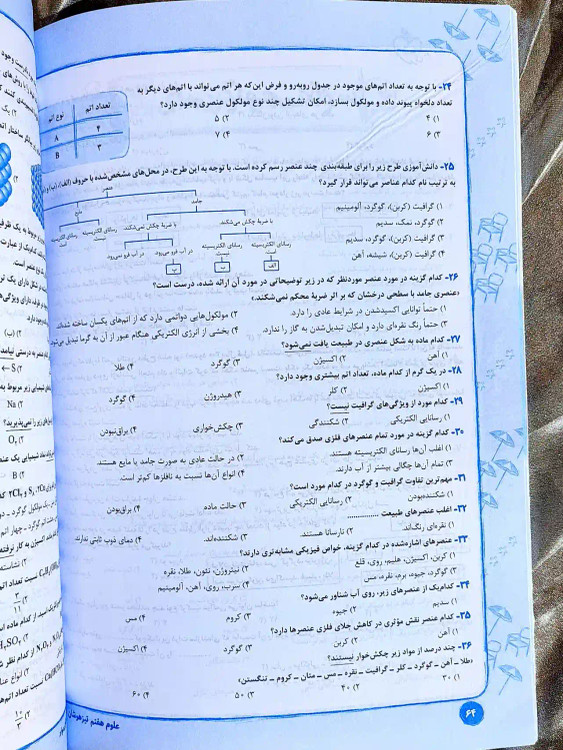 ۲۴- با توجه به تعداد اتم‌های موجود در جدول روبه‌رو و فرض این‌که هر اتم می‌تواند با اتم‌های دیگر به
تعداد دلخواه پیوند داده و مولکول بسازد، امکان تشکیل چند نوع مولکول عنصری وجود دارد؟
۱) ۴
۲) ۵
۳) ۶
۴) ۷
نوع اتم تعداد اتم
A ۴
B ۳
۲۵- دانش‌آموزی طرح زیر را برای طبقه‌بندی چند عنصر رسم کرده است. با توجه به این طرح، در محل‌های مشخص‌شده با حروف (الف)، (ب) و
به ترتیب نام کدام عناصر می‌تواند قرار گیرد؟
عنصر
جامد
مایع
با ضربهٔ چکش می‌شکند.
با ضربهٔ چکش نمی‌شکند.
رسانای الکتریسیته است
رسانای الکتریسیته نیست
رسانای الکتریسیته است
رسانای الکتریسیته نیست
در آب فرو می‌رود
در آب فرو نمی‌رود
الف
ب
۱) گرافیت (کربن)، گوگرد، آلومینیم
۲) گوگرد، نمک، سدیم
۳) گرافیت (کربن)، گوگرد، سدیم
۴) گرافیت (کربن)، شیشه، آهن
۲۶- کدام گزینه در مورد عنصر موردنظر که در زیر توضیحاتی در مورد آن ارائه شده، درست است؟
«عنصری جامد با سطحی درخشان که بر اثر ضربهٔ محکم نمی‌شکند.»
۱) حتماً توانایی اکسیدشدن در شرایط عادی را دارد.
۲) مولکول‌هایی دواتمی دارد که از اتم‌های یکسان ساخته شده‌اند.
۳) حتماً رنگ نقره‌ای دارد و امکان تبدیل‌شدن به گاز را ندارد.
۴) بخشی از انرژی الکتریکی هنگام عبور از آن به گرما تبدیل می‌شود.
۲۷- کدام ماده به شکل عنصری در طبیعت یافت نمی‌شود؟
۱) آهن
۲) اکسیژن
۳) گوگرد
۴) طلا
۲۸- در یک گرم از کدام ماده، تعداد اتم بیشتری وجود دارد؟
۱) اکسیژن
۲) کلر
۳) هیدروژن
۴) گوگرد
۲۹- کدام مورد از ویژگی‌های گرافیت نیست؟
۱) رسانایی الکتریکی
۲) شکنندگی
۳) چکش‌خواری
۴) براق‌نبودن
۳۰- کدام گزینه در مورد تمام عنصرهای فلزی صدق می‌کند؟
۱) اغلب آن‌ها رسانای الکتریسیته هستند.
۲) در حالت عادی به صورت جامد یا مایع هستند.
۳) تمام آن‌ها چگالی بیشتر از آب دارند.
۴) انواع آن‌ها نسبت به نافلزها کم‌تر است.
۳۱- مهم‌ترین تفاوت گرافیت و گوگرد در کدام مورد است؟
۱) شکننده‌بودن
۲) رسانایی الکتریکی
۳) حالت ماده
۴) براق‌بودن
۳۲- اغلب عنصرهای طبیعت ................
۱) نقره‌ای رنگ‌اند.
۲) نارسانا هستند.
۳) شکننده‌اند.
۴) دمای ذوب ثابتی ندارند.
۳۳- عنصرهای اشاره‌شده در کدام گزینه، خواص فیزیکی مشابه‌تری دارند؟
۱) کربن، اکسیژن، هلیم، روی، قلع
۲) نیتروژن، نئون، طلا، نقره
۳) گوگرد، جیوه، برم، نقره، مس
۴) سرب، روی، آهن، آلومینیم
۳۴- کدام‌یک از عنصرهای زیر، روی آب شناور می‌شود؟
۱) سدیم
۲) جیوه
۳) کروم
۴) مس
۳۵- کدام عنصر نقش مؤثری در کاهش جلای فلزی عنصرها دارد؟
۱) آهن
۲) کربن
۳) گوگرد
۴) اکسیژن
۳۶- چند درصد از مواد زیر چکش‌خوار نیستند؟
«طلا – آهن – گوگرد – کلر – گرافیت – نقره – مس – متان – کروم – تنگستن»
۱) ۳۰
۲) ۴۰
۳) ۵۰
۴) ۶۰
علوم هفتم تیزهوشان
۶۴